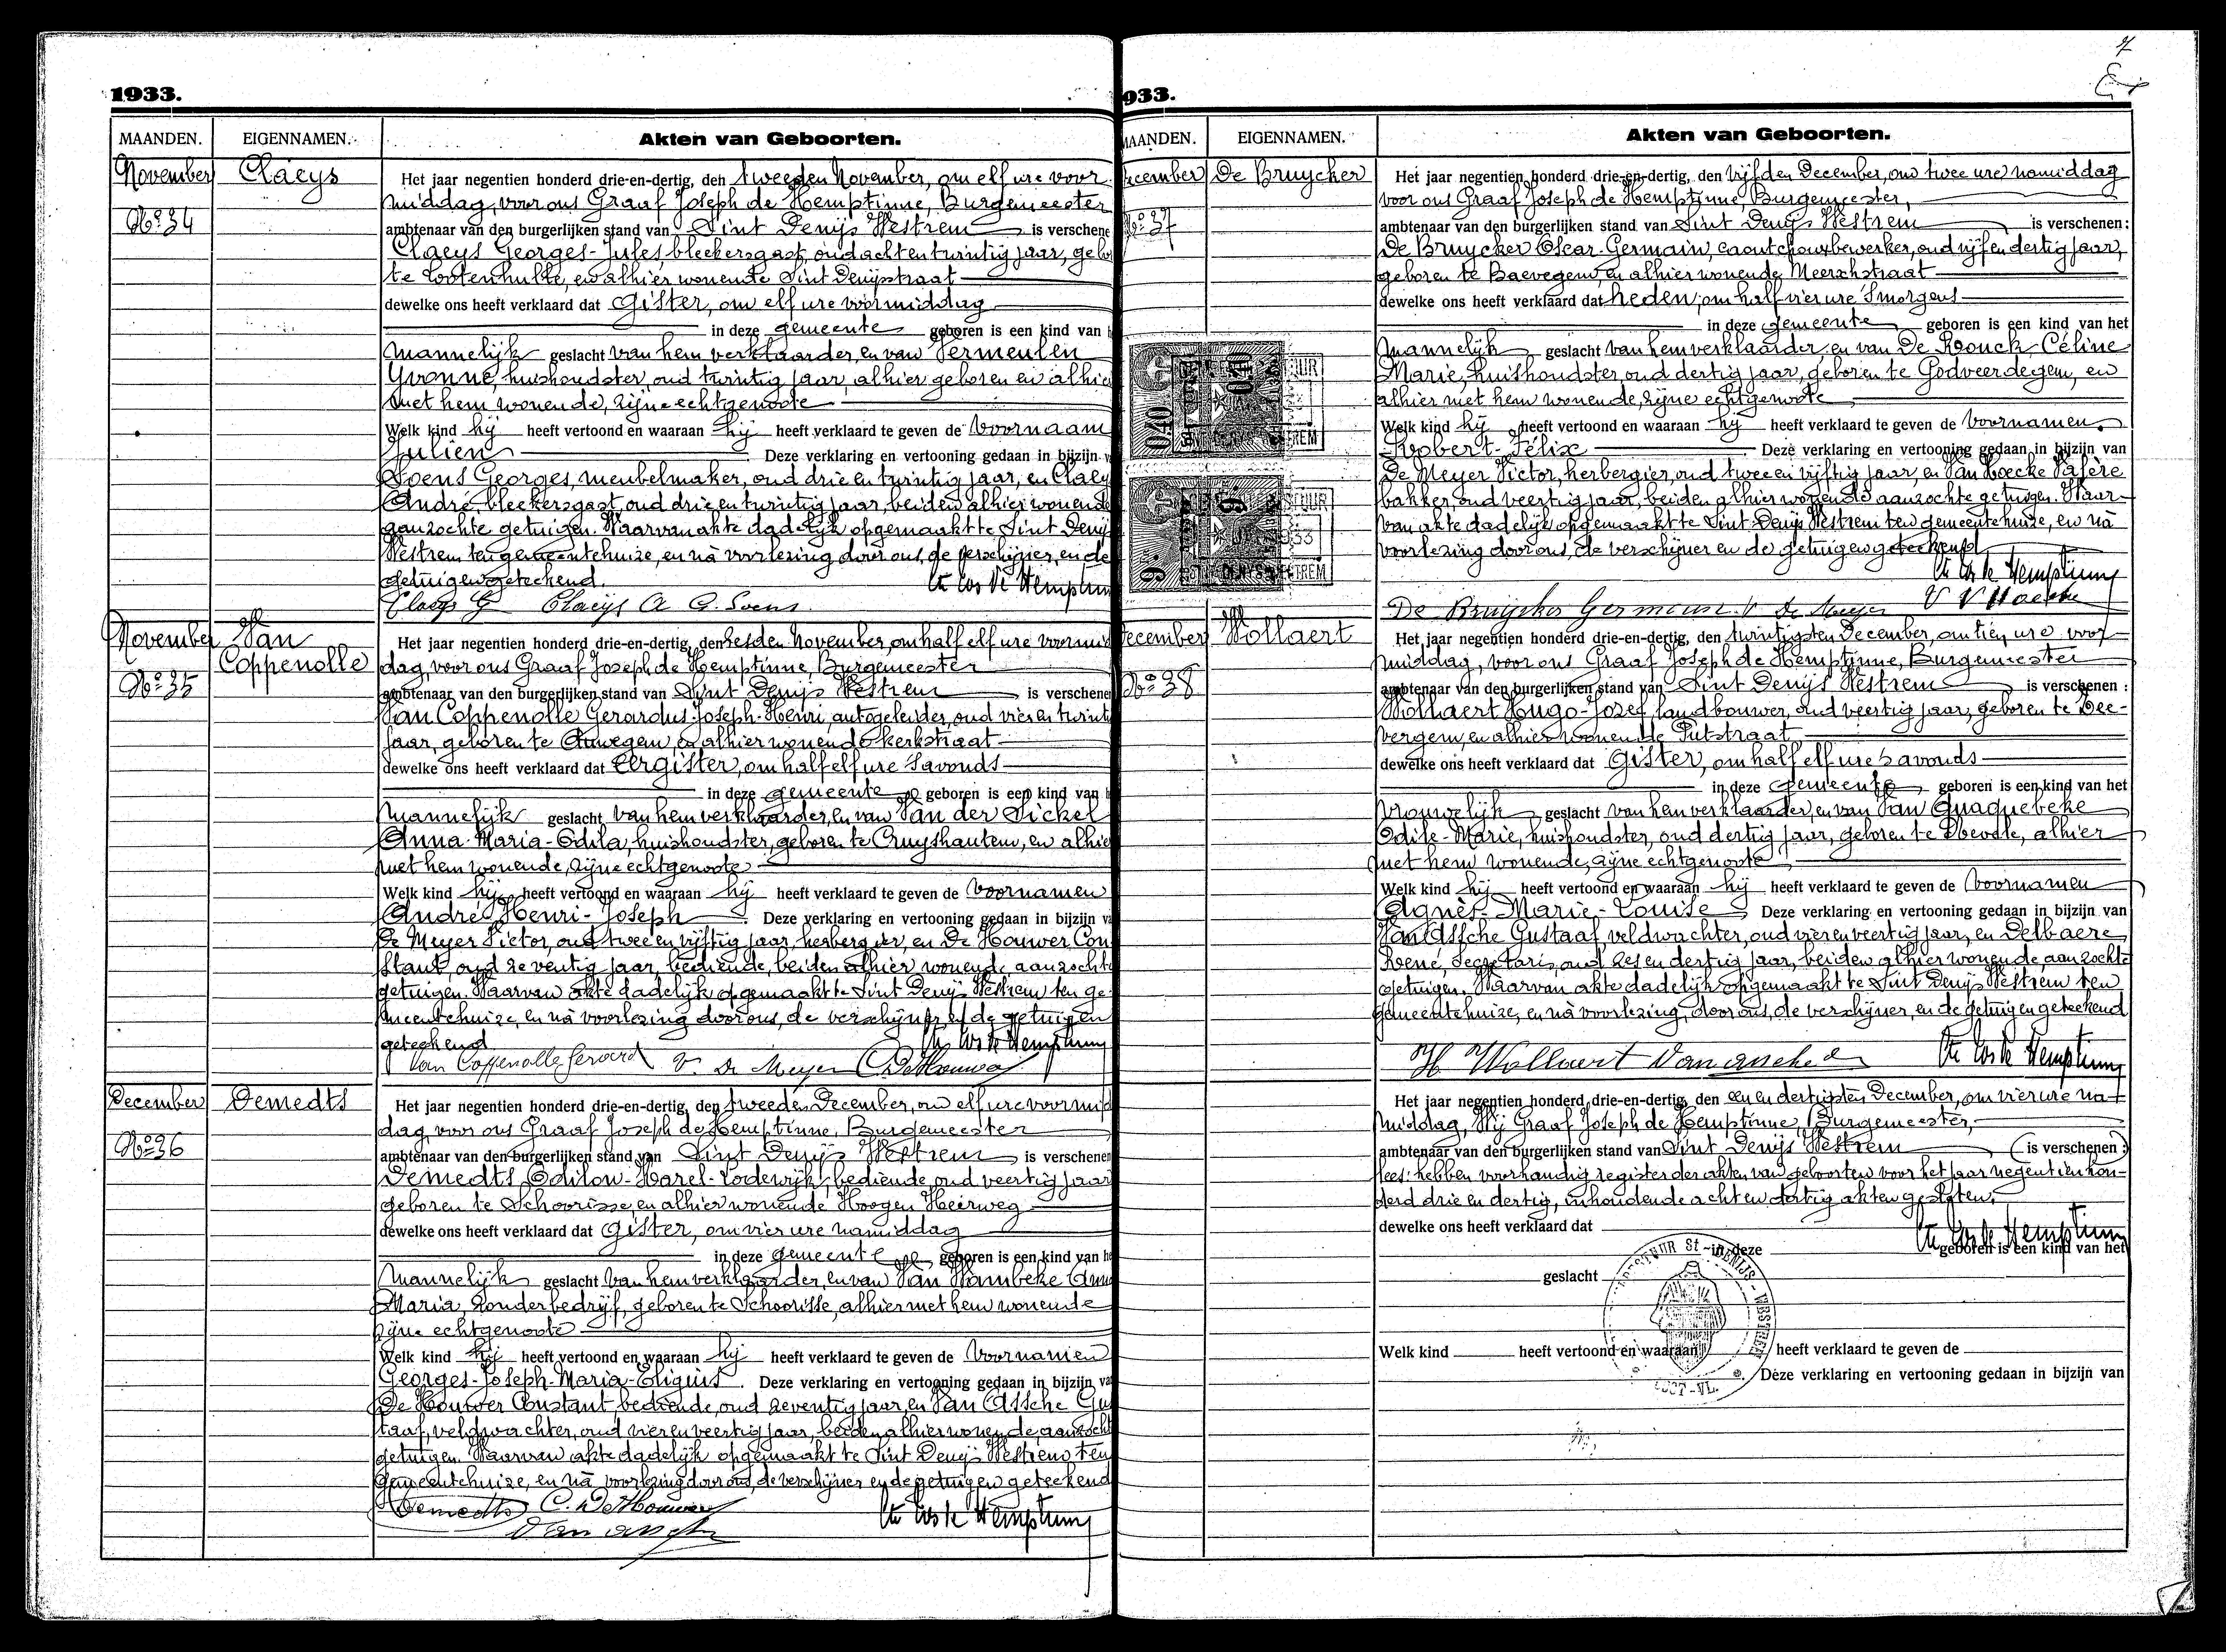 1933.
MAANDEN. EIGENNAMEN. Akten van Geboorten.
November Claeys Het jaar negentien honderd drie-en-dertig, den tweeden November, om elf ure voor
middag, voor ons Graaf Joseph de Hemptinne, Burgemeester
No 34 ambtenaar van den burgerlijken stand van Sint Denijs Westrem is verschene
Claeys Georges-Jules bleekersgast, oud acht en twintig jaar, gebo
te Lootenhulle, en alhier wonende Sint Denijsstraat
dewelke ons heeft verklaard dat Gister, om elf ure voormiddag
in deze gemeente geboren is een kind van
Mannelijk geslacht van hem verklaarder, en van Vermeulen
Yvonne, huishoudster, oud twintig jaar, alhier geboren en alhier
met hem wonende, zijne echtgenoote
Welk kind hij heeft vertoond en waaraan hij heeft verklaard te geven de voornaam
Julien Deze verklaring en vertooning gedaan in bijzijn v
Soens Georges, meubelmaker, oud drie en twintig jaar, en Claey
André, bleekersgast, oud drie en twintig jaar, beiden alhier wonende
aanzochte getuigen. Waarvan akte dadelijk opgemaakt te Sint Denijs
Westrem ten gemeentehuize, en nà voorlezing door ons, de verschijner, en de
getuigen geteekend.
Claeys G Claeys A G. Soens
November Van Het jaar negentien honderd drie-en-dertig, den zesden November, om half elf ure voormid
Coppenolle dag, voor ons Graaf Joseph de Hemptinne, Burgemeester
No 35 ambtenaar van den burgerlijken stand van Sint Denijs Westrem is verschenen
Van Coppenolle Gerardus-Joseph-Henri, autogeleider, oud vier en twint
jaar, geboren te Auwegem en alhier wonende Kerkstraat
dewelke ons heeft verklaard dat Eergister, om half elf ure 's avonds
in deze gemeente geboren is een kind van
Mannelijk geslacht van hem verklaarder, en van Van der Sickel
Anna-Maria-Odila, huishoudster, geboren te Cruyshautem, en alhier
met hem wonende, zijne echtgenoote
Welk kind hij heeft vertoond en waaraan hij heeft verklaard te geven de voornamen
André-Henri-Joseph Deze verklaring en vertooning gedaan in bijzijn va
De Meyer Victor, oud twee en vijftig jaar, herbergier, en De Houwer Con
stant, oud zeventig jaar, bediende, beiden alhier wonende, aanzochte
getuigen. Waarvan akte dadelijk opgemaakt te Sint Denijs Westrem ten ge
meentehuize, en nà voorlezing door ons, de verschijner, en de getuigen
geteekend
Van Coppenolle Gerard V. De Meyer C DeHouwer
December Demedts Het jaar negentien honderd drie-en-dertig, den tweeden December, om elf ure voormid
dag, voor ons Graaf Joseph de Hemptinne, Burgemeester
No 36 ambtenaar van den burgerlijken stand van Sint Denijs Westrem is verschenen
Demedts Odilon-Karel-Lodewijk, bediende, oud veertig jaar
geboren te Schoorisse, en alhier wonende Hoogen Heirweg
dewelke ons heeft verklaard dat Gister, om vier ure namiddag
in deze gemeente geboren is een kind van he
Mannelijk geslacht van hem verklaarder, en van Van Wambeke Anna
Maria, zonder bedrijf, geboren te Schoorisse, alhier met hem wonende
zijne echtgenoote
Welk kind hij heeft vertoond en waaraan hij heeft verklaard te geven de voornamen
Georges-Joseph-Maria-Eligius. Deze verklaring en vertooning gedaan in bijzijn va
De Houwer Constant, bediende, oud zeventig jaar, en Van Assche Gus
taaf, veldwachter, oud vier en veertig jaar, beiden alhier wonende, aanzocht
getuigen. Waarvan akte dadelijk opgemaakt te Sint Denijs Westrem ten
gemeentehuize, en nà voorlezing door ons, de verschijner en de getuigen geteekend
Demedts C. DeHouwer
Van assche
933.
MAANDEN. EIGENNAMEN. Akten van Geboorten.
December De Bruycker Het jaar negentien honderd drie-en-dertig, den vijfden December, om twee ure namiddag
voor ons Graaf Joseph de Hemptinne, Burgemeester,
No 37 ambtenaar van den burgerlijken stand van Sint Denijs Westrem is verschenen:
De Bruycker Oscar-Germain, caoutchouxbewerker, oud vijf en dertig jaar,
geboren te Baevegem, en alhier wonende Meerschstraat
dewelke ons heeft verklaard dat heden, om half vier ure 's morgens
in deze gemeente geboren is een kind van het
Mannelijk geslacht van hem verklaarder, en van De Roouck Céline
Marie, huishoudster, oud dertig jaar, geboren te Godveerdegem, en
alhier met hem wonende, zijne echtgenoote
Welk kind hij heeft vertoond en waaraan hij heeft verklaard te geven de voornamen
Robert-Félix Deze verklaring en vertooning gedaan in bijzijn van
De Meyer Victor, herbergier, oud twee en vijftig jaar, en Van Hoecke Valère
bakker, oud veertig jaar, beiden alhier wonende aanzochte getuigen. Waar-
van akte dadelijk opgemaakt te Sint Denijs Westrem ten gemeentehuize, en nà
voorlezing door ons, de verschijner en de getuigen geteekend
De Bruycker Germain V de Meyer V V Hoecke
December Wollaert Het jaar negentien honderd drie-en-dertig, den twintigsten December, om tien ure voor
middag, voor ons Graaf Joseph de Hemptinne, Burgemeester
No 38 ambtenaar van den burgerlijken stand van Sint Denijs Westrem is verschenen :
Wollaert Hugo-Jozef, landbouwer, oud veertig jaar, geboren te Bee-
vergem, en alhier wonende Putstraat
dewelke ons heeft verklaard dat Gister, om half elf ure 's avonds
in deze gemeente geboren is een kind van het
Vrouwelijk geslacht van hem verklaarder, en van Van Quaquebeke
Odile-Marie, huishoudster, oud dertig jaar, geboren te Ebevale, alhier
met hem wonende, zijne echtgenoote
Welk kind hij heeft vertoond en waaraan hij heeft verklaard te geven de voornamen
Agnès-Marie-Louise Deze verklaring en vertooning gedaan in bijzijn van
Van Assche Gustaaf, veldwachter, oud vier en veertig jaar, en Delbaere
René, Secretaris, oud zes en dertig jaar, beiden alhier wonende, aanzochte
getuigen. Waarvan akte dadelijk opgemaakt te Sint Denijs Westrem ten
gemeentehuize, en nà voorlezing, door ons, de verschijner, en de getuigen geteekend
H Wollaert Van assche
Het jaar negentien honderd drie-en-dertig, den een en dertigsten December, om vier ure na-
middag, Wij Graaf Joseph de Hemptinne, Burgemeester,
ambtenaar van den burgerlijken stand van Sint Denijs Westrem (is verschenen :)
lees: hebben voorhandig register der akten van geboorten voor het jaar negentien hon-
derd drie en dertig, inhoudende acht en dertig akten gesloten.
dewelke ons heeft verklaard dat
in deze geboren is een kind van het
geslacht
Welk kind heeft vertoond en waaraan heeft verklaard te geven de
Deze verklaring en vertooning gedaan in bijzijn van